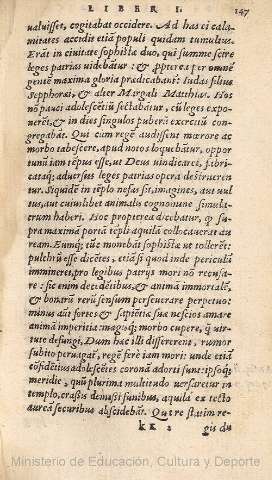 LIBER I. 147
valuisset, cogitabat occidere. Ad has ei cala-
mitates accidit etiã populi quidam tumultus.
Erãt in civitate sophistæ duo, qui summe scire
leges patrias videbãtur: & ꝓpterea per omnẽ
gentẽ maxima gloria prædicabant: Iudas filius
Sepphoræi, & alter Margali Matthias. Hos
nõ pauci adolescẽtiũ sectabãtur, cũ leges expo-
nerẽt, & in dies singulos puberũ exercitũ con-
gregabãt. Qui cum regẽ audissent mœrore ac
morbo tabescere, apud notos loquebãtur, oppor-
tunũ iam tẽpus esse, ut Deus vindicaret,
cataq; adversus leges patrias opera destruerẽn
tur. Siquidẽ in tẽplo nefas sit, imagines, aut vul
tus, aut cuiuslibet animalis cognomine simula-
crum haberi. Hoc propterea dicebãtur, ꝙ su-
pra maximã portã tẽpli aquilã collocaverat au
ream. Eamq; tũc monebãt sophistæ ut tollerẽt:
pulchrũ esse dicẽtes, etiã si quod inde periculũ
immineret, pro legibus patrys mori nõ recusa-
re: sic enim decedẽtibus, & animã immortalẽ,
& bonarũ rerũ sensum perseverare perpetuo:
minus aũt fortes & sapiẽtiæ suæ nescios amare
animã imperitia: magisq; morbo cupere, ꝗ̃ vir-
tute defungi. Dum hæc illi dissererent, rumor
subito pervagat, regẽ ferè iam mori: unde etiã
cõfidẽtius adolescẽtes coronã adorti sunt: ipsoq;
meridie, quũ plurima multitudo versaretur in
templo, crassis demissi funibus, aquila ex tecto
aureã securibus abscidebãt. Qua re statim re-
kk 2 gis du
Ministerio de Educación, Cultura y Deporte